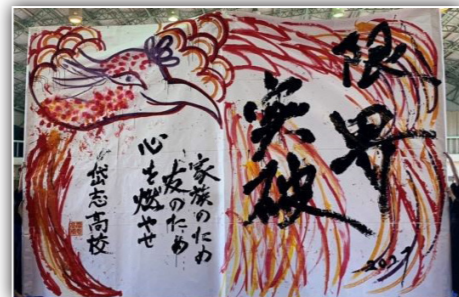 限界
突破
家族のため
友のため
心を燃やせ
岱志高校